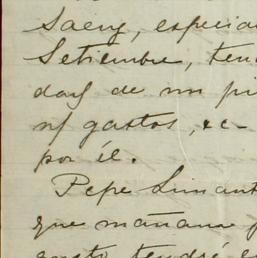 Saenz, especia
Setiembre, ten
de mi
gastos, &c-
por él.
Pepe Limant
que mañana
gusto tendré